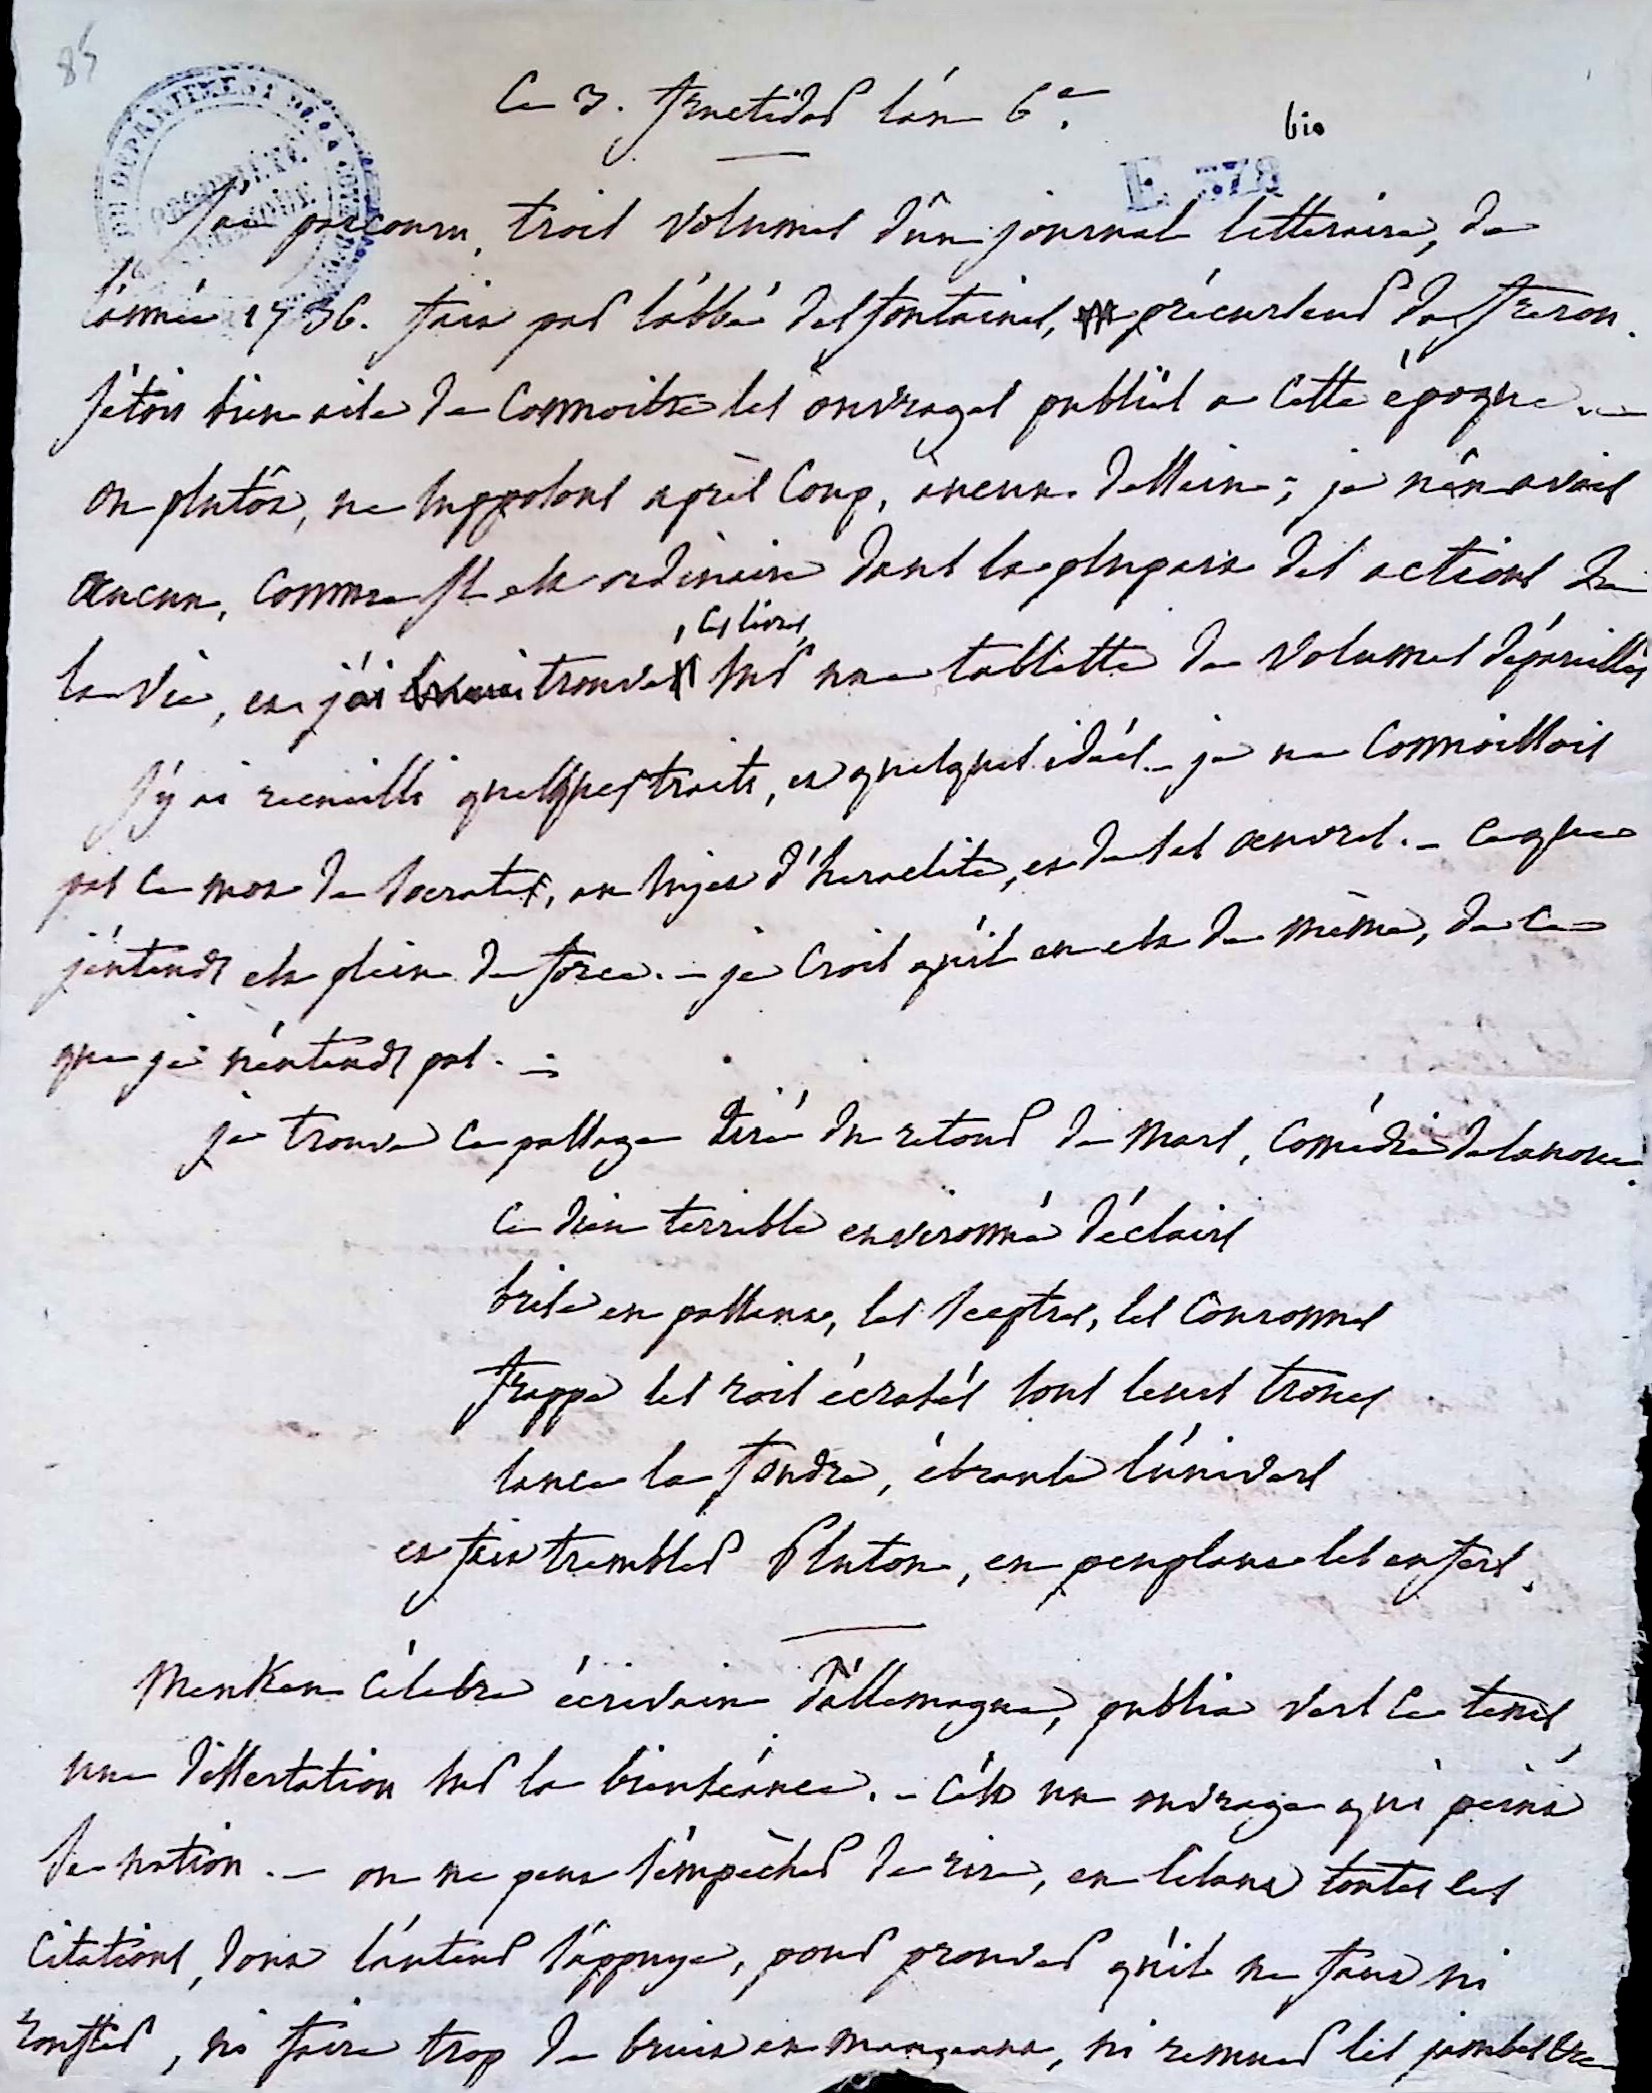 85
Ce 3. fructidor l'an 6e.
bis
E 378
J'ai parcouru, trois volumes d'un journal litteraire, de
l'année 1736. fait par l'abbé desfontaines, précurseur de freron.
J'étois bien aise de connoitre les ouvrages publiés a cette époque. —
ou plutôt, ne supposons après coup, aucun dessein; je n'en avois
aucun, comme il est ordinaire dans la plupart des actions de
la vie, et j'ai trouvé, ces livres, sur une tablette de volumes dépareillés
J'y ai recueilli quelques traits, et quelques idées. — je ne connoissois
pas ce mot de socrate, au sujet d'heraclite, et de ses œuvres. — ce que
j'entends est plein de force. — je crois qu'il en est de même, de ce
que je n'entends pas. —
je trouve ce passage tiré du retour de mars, comédie de lanoue.
ce dieu terrible environné d'éclairs
brise en passant, les sceptres, les couronnes
frappe les rois écrasés sous leurs trones
lance la foudre, ébranle l'univers
et fait trembler Pluton, en peuplant les enfers.
Menken célebre écrivain d'allemagne, publia vers ce tems,
une dissertation sur la bienséance. — C'est un ouvrage qui peint
sa nation. — on ne peut s'empêcher de rire, en lisant toutes les
citations, dont l'auteur s'appuye, pour prouver qu'il ne faut ni
ronfler, ni faire trop de bruit en mangeant, ni remuer les jambes